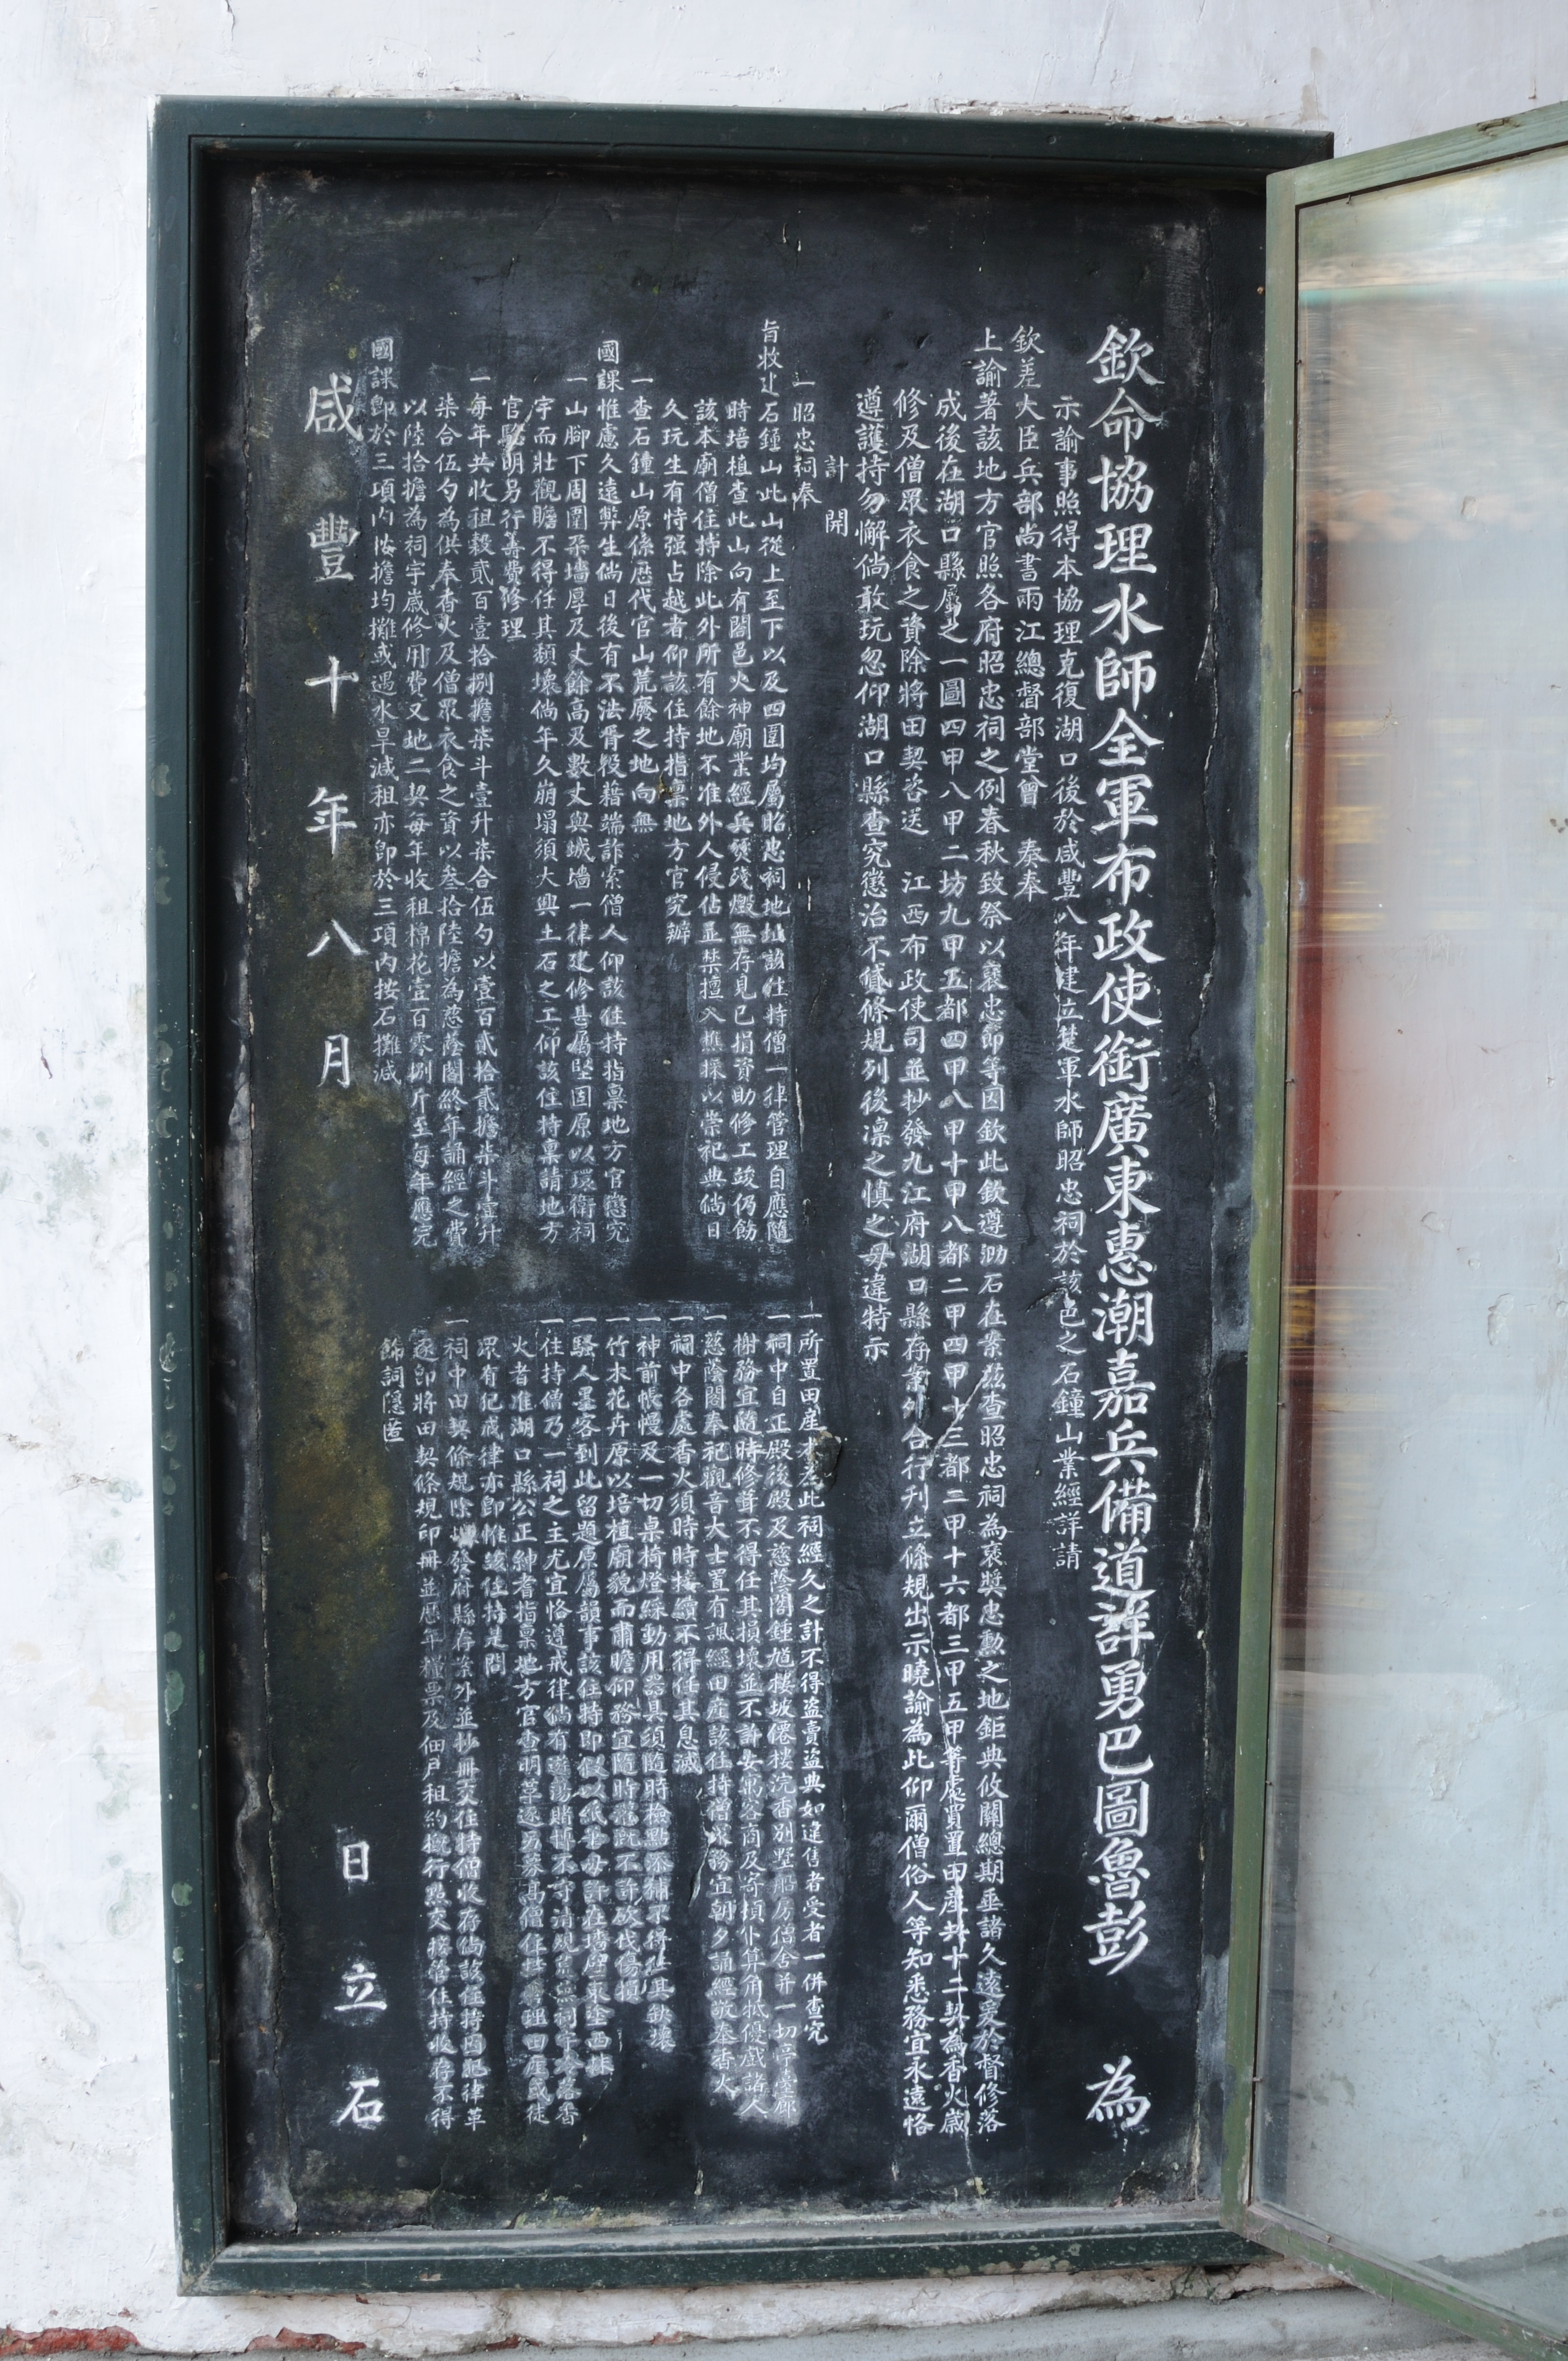 欽命協理水師全軍布政使銜廣東惠潮嘉兵備道詳勇巴圖魯彭 為
示諭事照得本協理克復湖口後於咸豐八年建立楚軍水師昭忠祠於該邑之石鐘山業經詳請
欽差大臣兵部尚書兩江總督部堂曾 奏奉
上諭著該地方官照各府昭忠祠之例春秋致祭以襄忠節等因欽此欽遵泐石在案茲查昭忠祠為褒奬忠勳之地鉅典攸關總期垂諸久遠爰於督修落
成後在湖口縣屬之一圖四甲八甲二坊九甲五都四甲八甲十甲八都二甲四甲十三都二甲十六都三甲五甲等處買置田產共十二契為香火歲
修及僧眾衣食之資除將田契咨送 江西布政使司並抄發九江府湖口縣存案外合行刊立條規出示曉諭為此仰爾僧俗人等知悉務宜永遠恪
遵護持勿懈倘敢玩忽仰湖口縣查究懲治不貸條規列後凜之慎之毋違特示
計 開
一昭忠祠奉
旨敕 石鐘山此山從上至下以及四圍均屬昭忠祠地址該住持僧一律管理自應隨
時培植查此山向有闔邑火神廟業經兵燹殘燬無存見已捐資助修工竣仍飭
該本廟僧住持除此外所有餘地不准外人侵佔並禁擅入樵採以崇祀典倘日
久玩生有恃强占越者仰該住持指稟地方官究辦
一查石鐘山原係歷代官山荒廢之地向無
國課惟慮久遠弊生倘日後有不法胥役藉端詐索僧人仰該住持指稟地方官懲究
一山腳下周圍朶墻厚及丈餘高及數丈與城墻一律建修甚屬堅固原以環衛祠
宇而壯觀瞻不得任其頹壞倘年久崩塌須大興土石之工仰該住持稟請地方
官驗明另行籌費修理
一每年共收租穀貳百壹拾捌擔柒斗壹升柒合伍勺以壹百貳拾貳擔柒斗壹升
柒合伍勺為供奉香火及僧眾衣食之資以叁拾陸擔為慈蔭閣終年誦經之費
以陸拾擔為祠宇歲修用費又地二契每年收租棉花壹百零捌斤至每年應完
國課卽於三項內按擔均攤或遇水旱減租亦卽於三項內按石攤減
一所置田產 為此祠經久之計不得盜賣盜典如違售者受者一併查究
一祠中自正殿後殿及慈蔭閣鍾 樓坡僊樓浣香別墅船房僧舍并一切亭臺廊
榭務宜隨時修葺不得任其損壞並不許女寓客商及寄 仆算角牴優戲諸人
一慈蔭閣奉祀觀音大士置有諷經田產該住持僧 務宜朝夕誦經敬奉香火
一祠中各處香火須時時接續不得任其息滅
一神前帳幔及一切桌椅燈綵動用器具須隨時檢點添補不得任其缺壞
一竹木花卉原以培植廟貌而肅瞻仰務宜隨時 不許砍伐傷損
一騷人墨客到此留題原屬韻事該住持即假以紙筆毋許在墻壁東塗西抹
一住持僧乃一祠之主尤宜恪遵戒律倘有遊蕩賭博不守清規 祠宇冷落香
火者准湖口縣公正紳耆指稟地方官查明革逐另募高僧住持 理田產 徒
眾有犯戒律亦卽惟該住持是問
一祠中田契條規除 發府縣存案外並抄冊交住持僧收存倘該住持因犯律革
逐卽將田契條規印冊並歷年糧票及佃戶租約 行點交接管住持收存不得
飾詞隱匿
咸豐十年八月 日立石